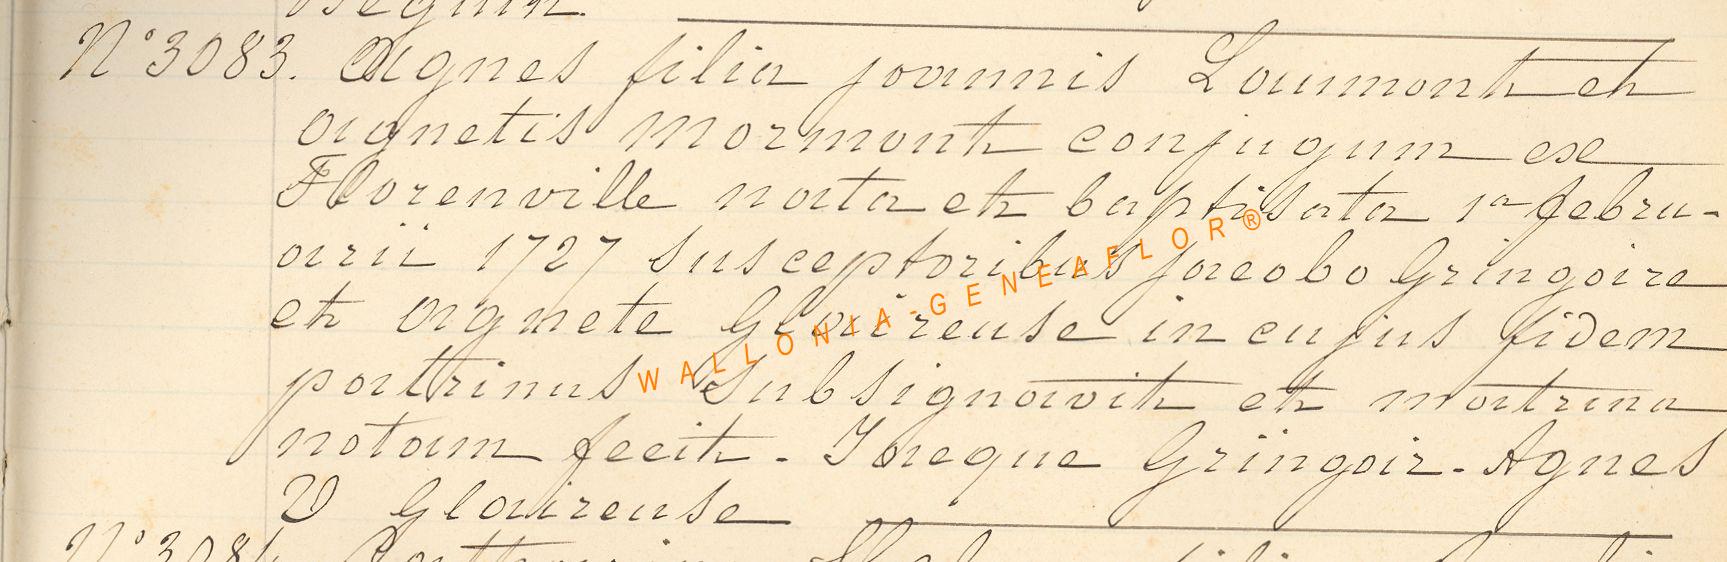 Beguin.
N° 3083. Agnes filia joannis Laumont et
agnetis Mormont conjugum ex
Florenville nata et baptisata 1a febru-
arii 1727 susceptoribus jacobo Gringoire
et agnete Glaireuse in cujus fidem
patrinus subsignavit et matrina
notam fecit. Jacque Gringoir. Agnes
V Glaireuse
WALLONIA-GENEAFLOR®
N° 3084